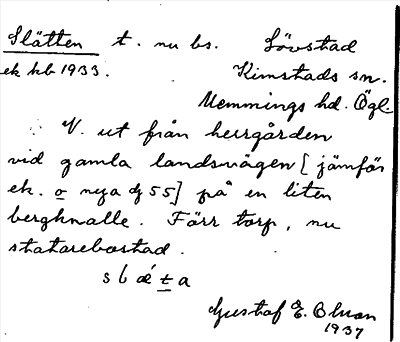 Slätten t. nu bs. Lövstad
ek kb 1933. Kimstads sn.
Memmings hd. Ögl.
V. ut från herrgården
vid gamla landsvägen [jämför
ek. o nya dj 55] på en liten
bergknalle. Förr torp, nu
statarebostad.
s b ǽ t a
Gustaf E. Olsson
1937